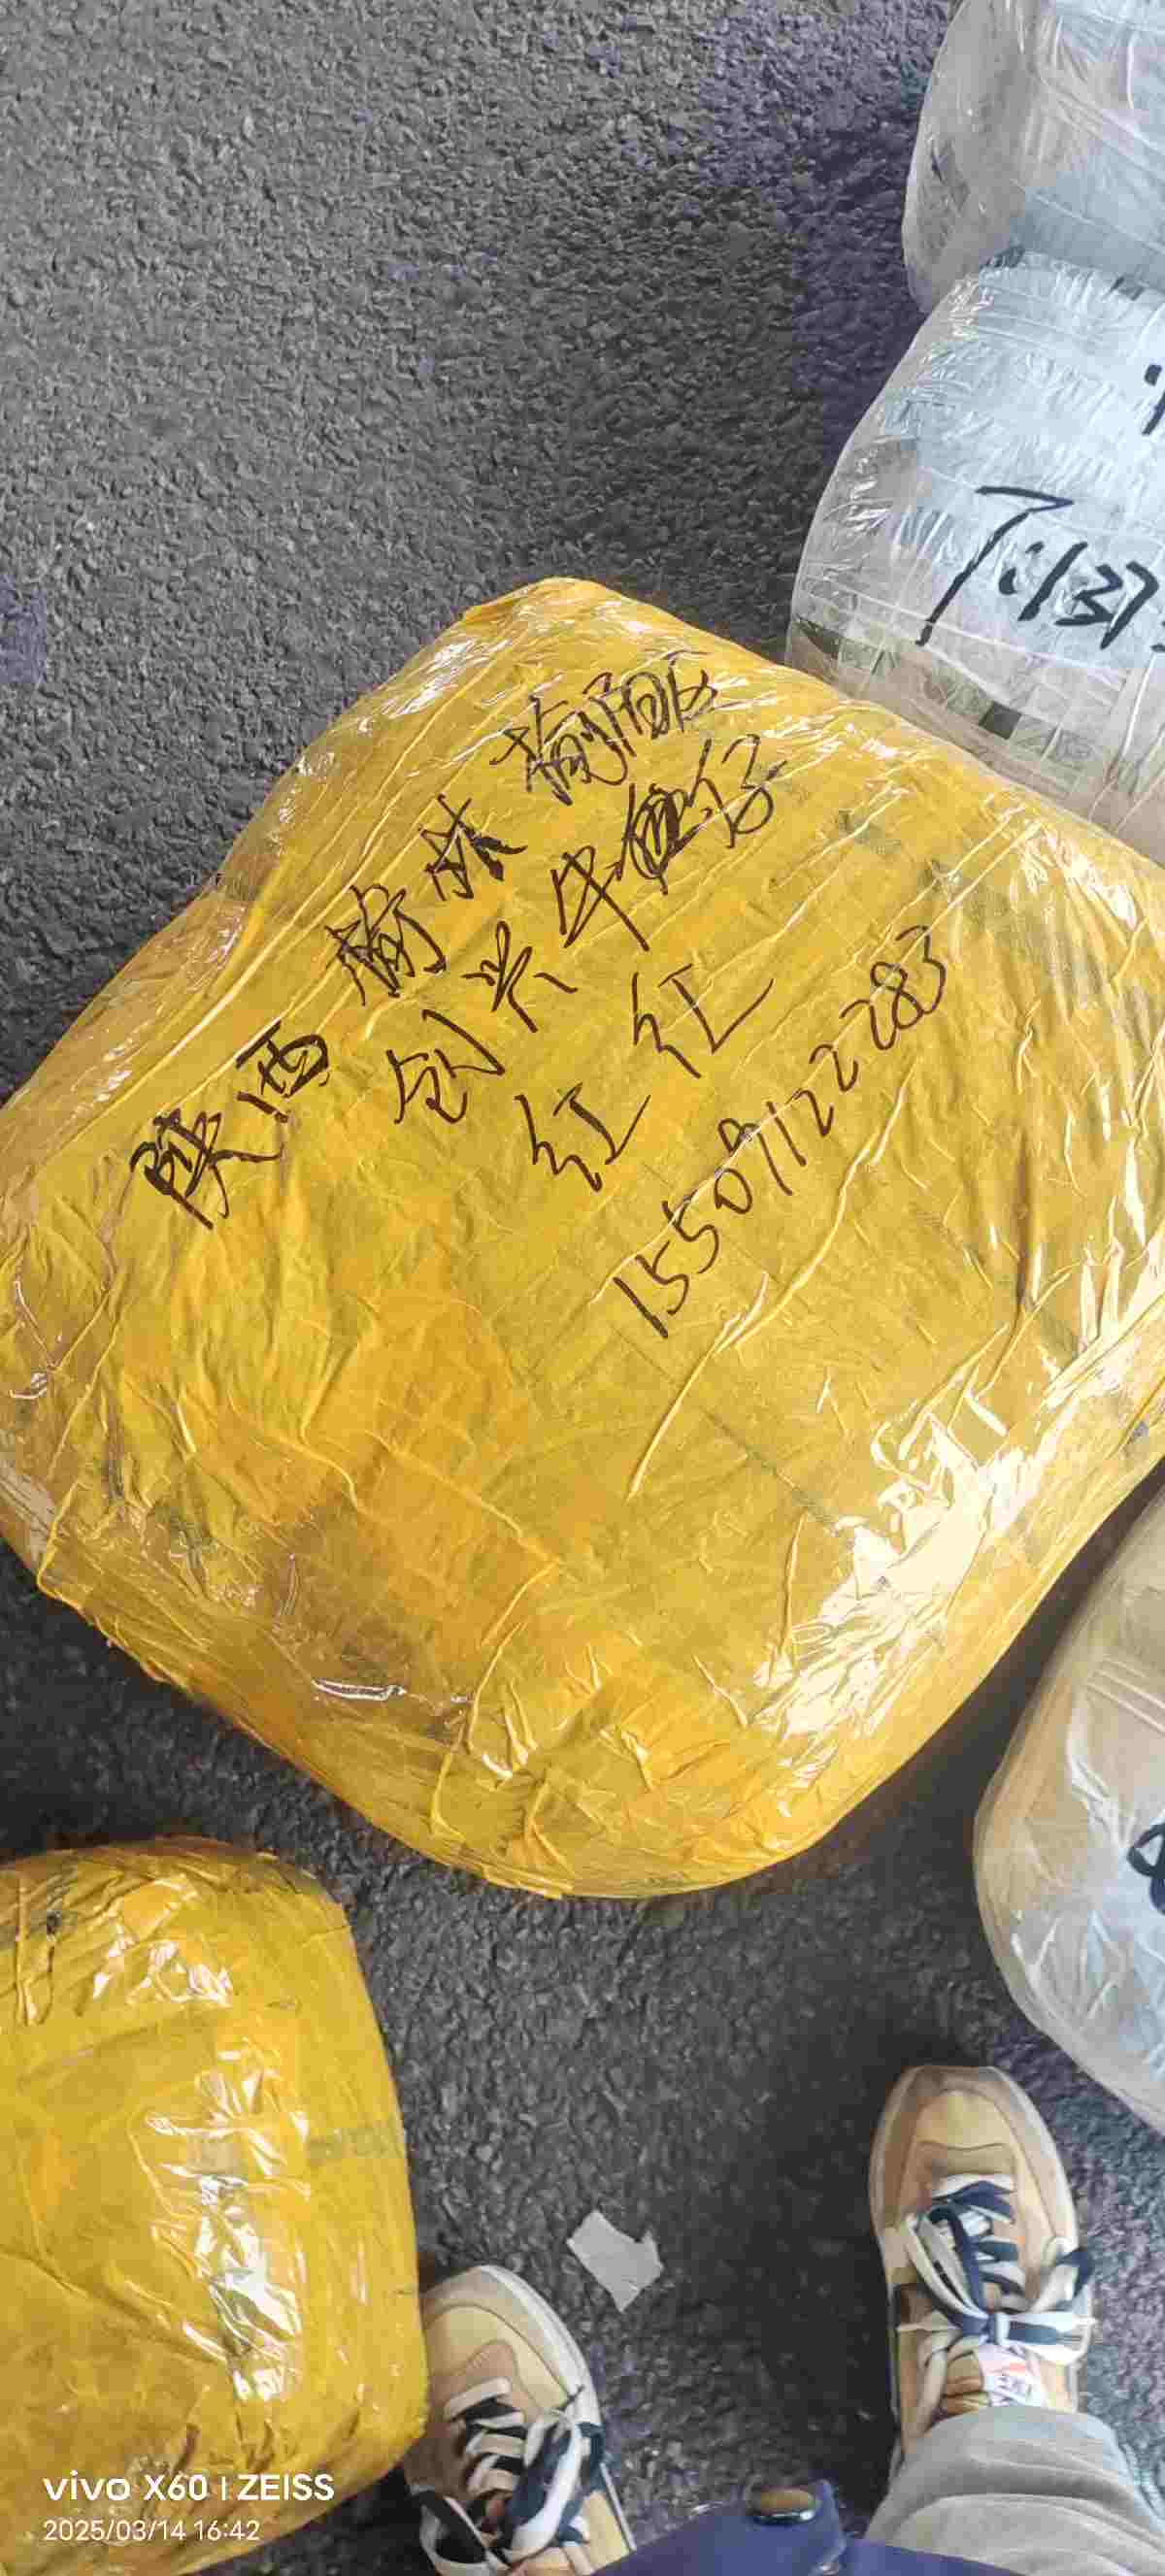 陕西 榆林 榆阳区
创兴中路
红红
15509122283
7:1137
vivo X60 | ZEISS
2025/03/14 16:42